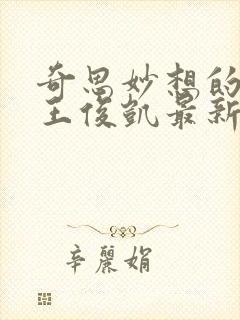 奇思妙想的
王俊凯最新
辛丽娟